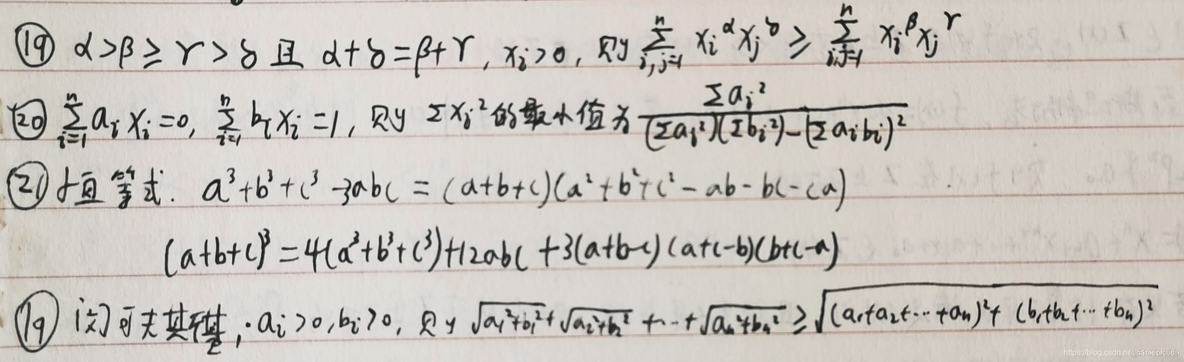 ⑲ α>β≥γ>δ 且 α+δ=β+γ, xᵢ>0, 则 ∑_{i,j=1}^{n} xᵢ^α xⱼ^δ ≥ ∑_{i,j=1}^{n} xᵢ^β xⱼ^γ
⑳ ∑_{i=1}^{n} aᵢxᵢ=0, ∑_{i=1}^{n} bᵢxᵢ=1, 则 Σxᵢ² 的最小值为 Σaᵢ² / ((Σaᵢ²)(Σbᵢ²)-(Σaᵢbᵢ)²)
㉑ 恒等式: a³+b³+c³-3abc = (a+b+c)(a²+b²+c²-ab-bc-ca)
(a+b+c)³ = 4(a³+b³+c³)+12abc+3(a+b-c)(a+c-b)(b+c-a)
⑲ 闵可夫斯基: aᵢ>0, bᵢ>0, 则 √(a₁²+b₁²)+√(a₂²+b₂²)+…+√(aₙ²+bₙ²) ≥ √((a₁+a₂+…+aₙ)²+(b₁+b₂+…+bₙ)²)